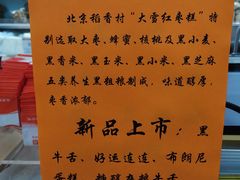 北京稻香村“大雪红枣糕”特
别选取大枣、蜂蜜、核桃及黑小麦、
黑香米、黑玉米、黑小米、黑芝麻
五类养生黑粗粮制成，味道醇厚，
枣香浓郁。
新品上市：黑
牛舌、好运连连、布朗尼
蛋糕、糖醇麻辣牛舌